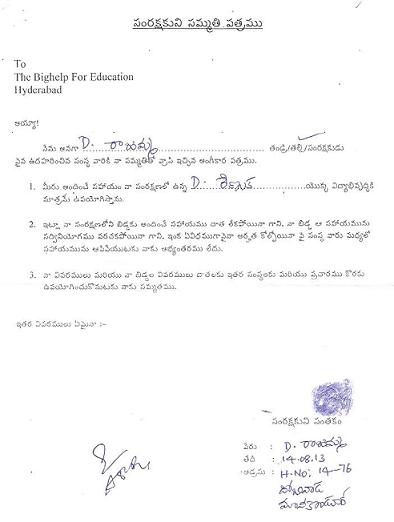 సంరక్షకుని సమ్మతి పత్రము
To
The Bighelp For Education
Hyderabad
అయ్యా!
నేను అనగా D. రాజమ్మ తండ్రి/తల్లి/సంరక్షకుడు
పైన ఉదహరించిన సంస్థ వారికి నా సమ్మతితో వ్రాసి ఇచ్చిన అంగీకార పత్రము.
1. మీరు అందించే సహాయం నా సంరక్షణలో ఉన్న D. యొక్క విద్యాభివృద్ధికి
మాత్రమే ఉపయోగిస్తాను.
2. ఇట్లా నా సంరక్షణలోని బిడ్డకు అందించే సహాయము దాత లేకపోయినా గాని, నా బిడ్డ ఆ సహాయమును
సద్వినియోగము పరచకపోయినా గాని, ఇంక ఏవిధముగానైనా అర్హత కోల్పోయినా పై సంస్థ వారు మధ్యలో
సహాయమును ఆపివేయుటకు నాకు అభ్యంతరము లేదు.
3. నా వివరములు మరియు నా బిడ్డల వివరములు దాతలకు ఇతర సంస్థలకు మరియు ప్రచారము కొరకు
ఉపయోగించుకొనుటకు నాకు సమ్మతము.
ఇతర వివరములు ఏమైనా :-
సంరక్షకుని సంతకం
పేరు : D. రాజమ్మ
తేది : 14.08.13
అడ్రసు : H.No: 14-76